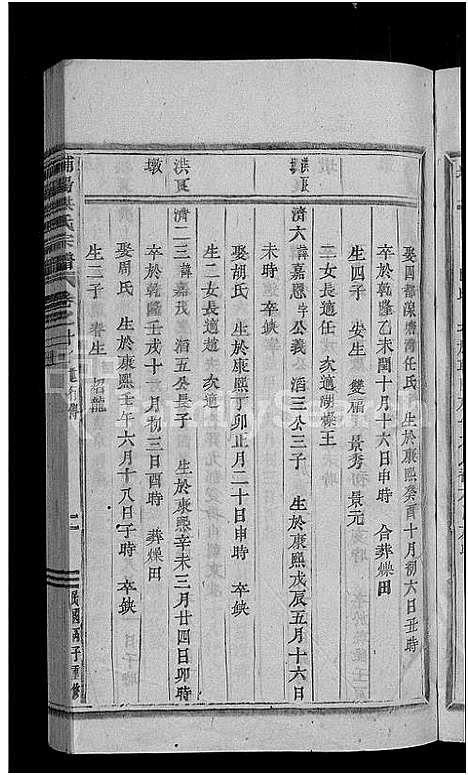 娶四都溪塘灣任氏 生於康熙癸酉十月初六日丑時
卒於乾隆乙未閏十月十六日申時 合葬燥田
生四子 安生 雙福 景秀 景元
二女長適任 次適湖燥王
濟六 諱嘉恩字公義 滔三公三子 生於康熙戊辰五月十六日
未時 卒缺
娶胡氏 生於康熙丁卯正月二十日申時 卒缺
生二女長適趙 次適
洪瓦墩
濟二三 諱嘉戎 滔五公長子 生於康熙辛未三月廿四日卯時
卒於乾隆壬戌十一月初三日酉時 葬燥田
娶周氏 生於康熙壬午六月十八日子時 卒缺
生二子 春生 招龍
浦陽洪氏宗譜 卷之 行傳 二 民國丙子重修